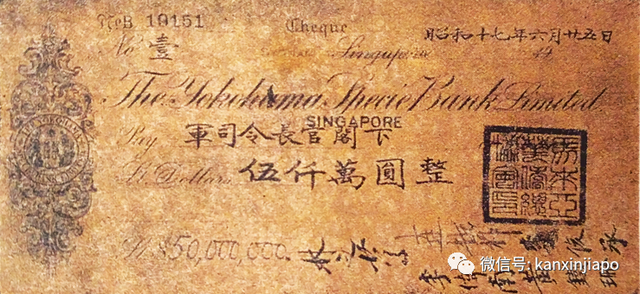 No B 10151 Cheque 昭和十七年六月廿五日
No 壹 Singapore
The Yokohama Specie Bank Limited
SINGAPORE
Pay 軍司令長官閣下
Dollars 伍仟萬圓整
馬來亞
華僑總
協會印
$50,000,000.
微信号: kanxinjiapo